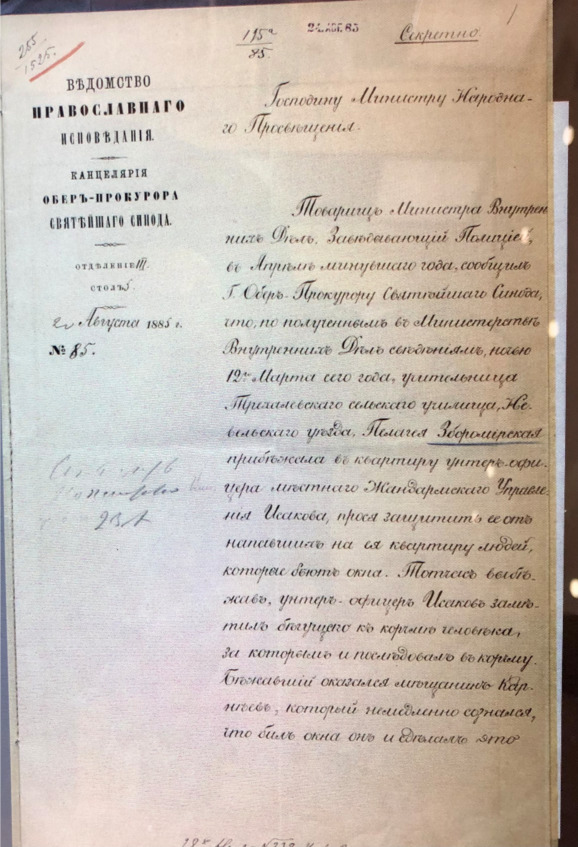 265
1525.
115а
85.
24. АВГ. 85
Секретно
ВѢДОМСТВО
ПРАВОСЛАВНАГО
ИСПОВѢДАНІЯ.
КАНЦЕЛЯРІЯ
ОБЕРЪ-ПРОКУРОРА
СВЯТѢЙШАГО СИНОДА.
ОТДѢЛЕНІЕ III.
СТОЛЪ 5.
Августа 1885 г.
№ 85.
23 А
Господину Министру Народна-
го Просвѣщенія.
Товарищъ Министра Внутрен
нихъ Дѣлъ, Завѣдывающій Полиціей,
въ Апрѣлѣ минувшаго года, сообщилъ
Г. Оберъ-Прокурору Святѣйшаго Синода,
что, по полученнымъ въ Министерствѣ
Внутреннихъ Дѣлъ свѣдѣніямъ, ночью
12го Марта сего года, учительница
Трехалевскаго сельскаго училища, Не-
вельскаго уѣзда, Пелагея Зборомирская
прибѣжала въ квартиру унтеръ-офи-
цера мѣстнаго Жандармскаго Управле-
нія Исакова, прося защитить ее отъ
напавшихъ на ея квартиру людей,
которые бьютъ окна. Тотчасъ выбѣ-
жавъ, унтеръ-офицеръ Исаковъ замѣ-
тилъ бѣгущаго къ корчмѣ человѣка,
за которымъ и послѣдовалъ въ корчму.
Бѣжавшій оказался мѣщанинъ Кар-
нѣевъ, который немедленно сознался,
что билъ окна онъ и сдѣлалъ это